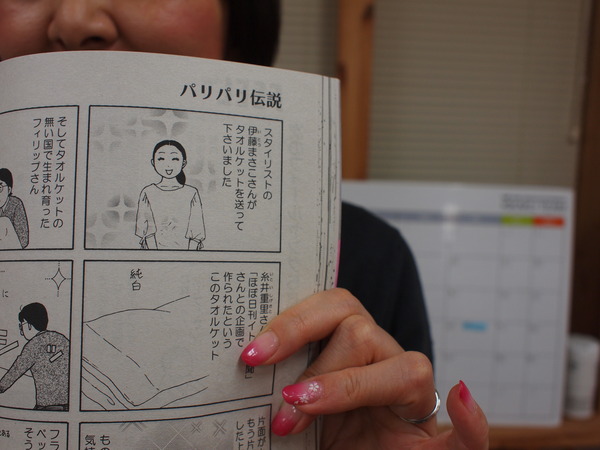 パリパリ伝説
スタイリストの
伊藤まさこさんが
タオルケットを送って
下さいました
そしてタオルケットの
無い国で生まれ育った
フィリップさん
糸井重里さん
「ほぼ日刊イト
さんとの企画で
作られたという
このタオルケット
純白
に
片面が
もう片
した上
もの
気持
フラ
ベッ
そう